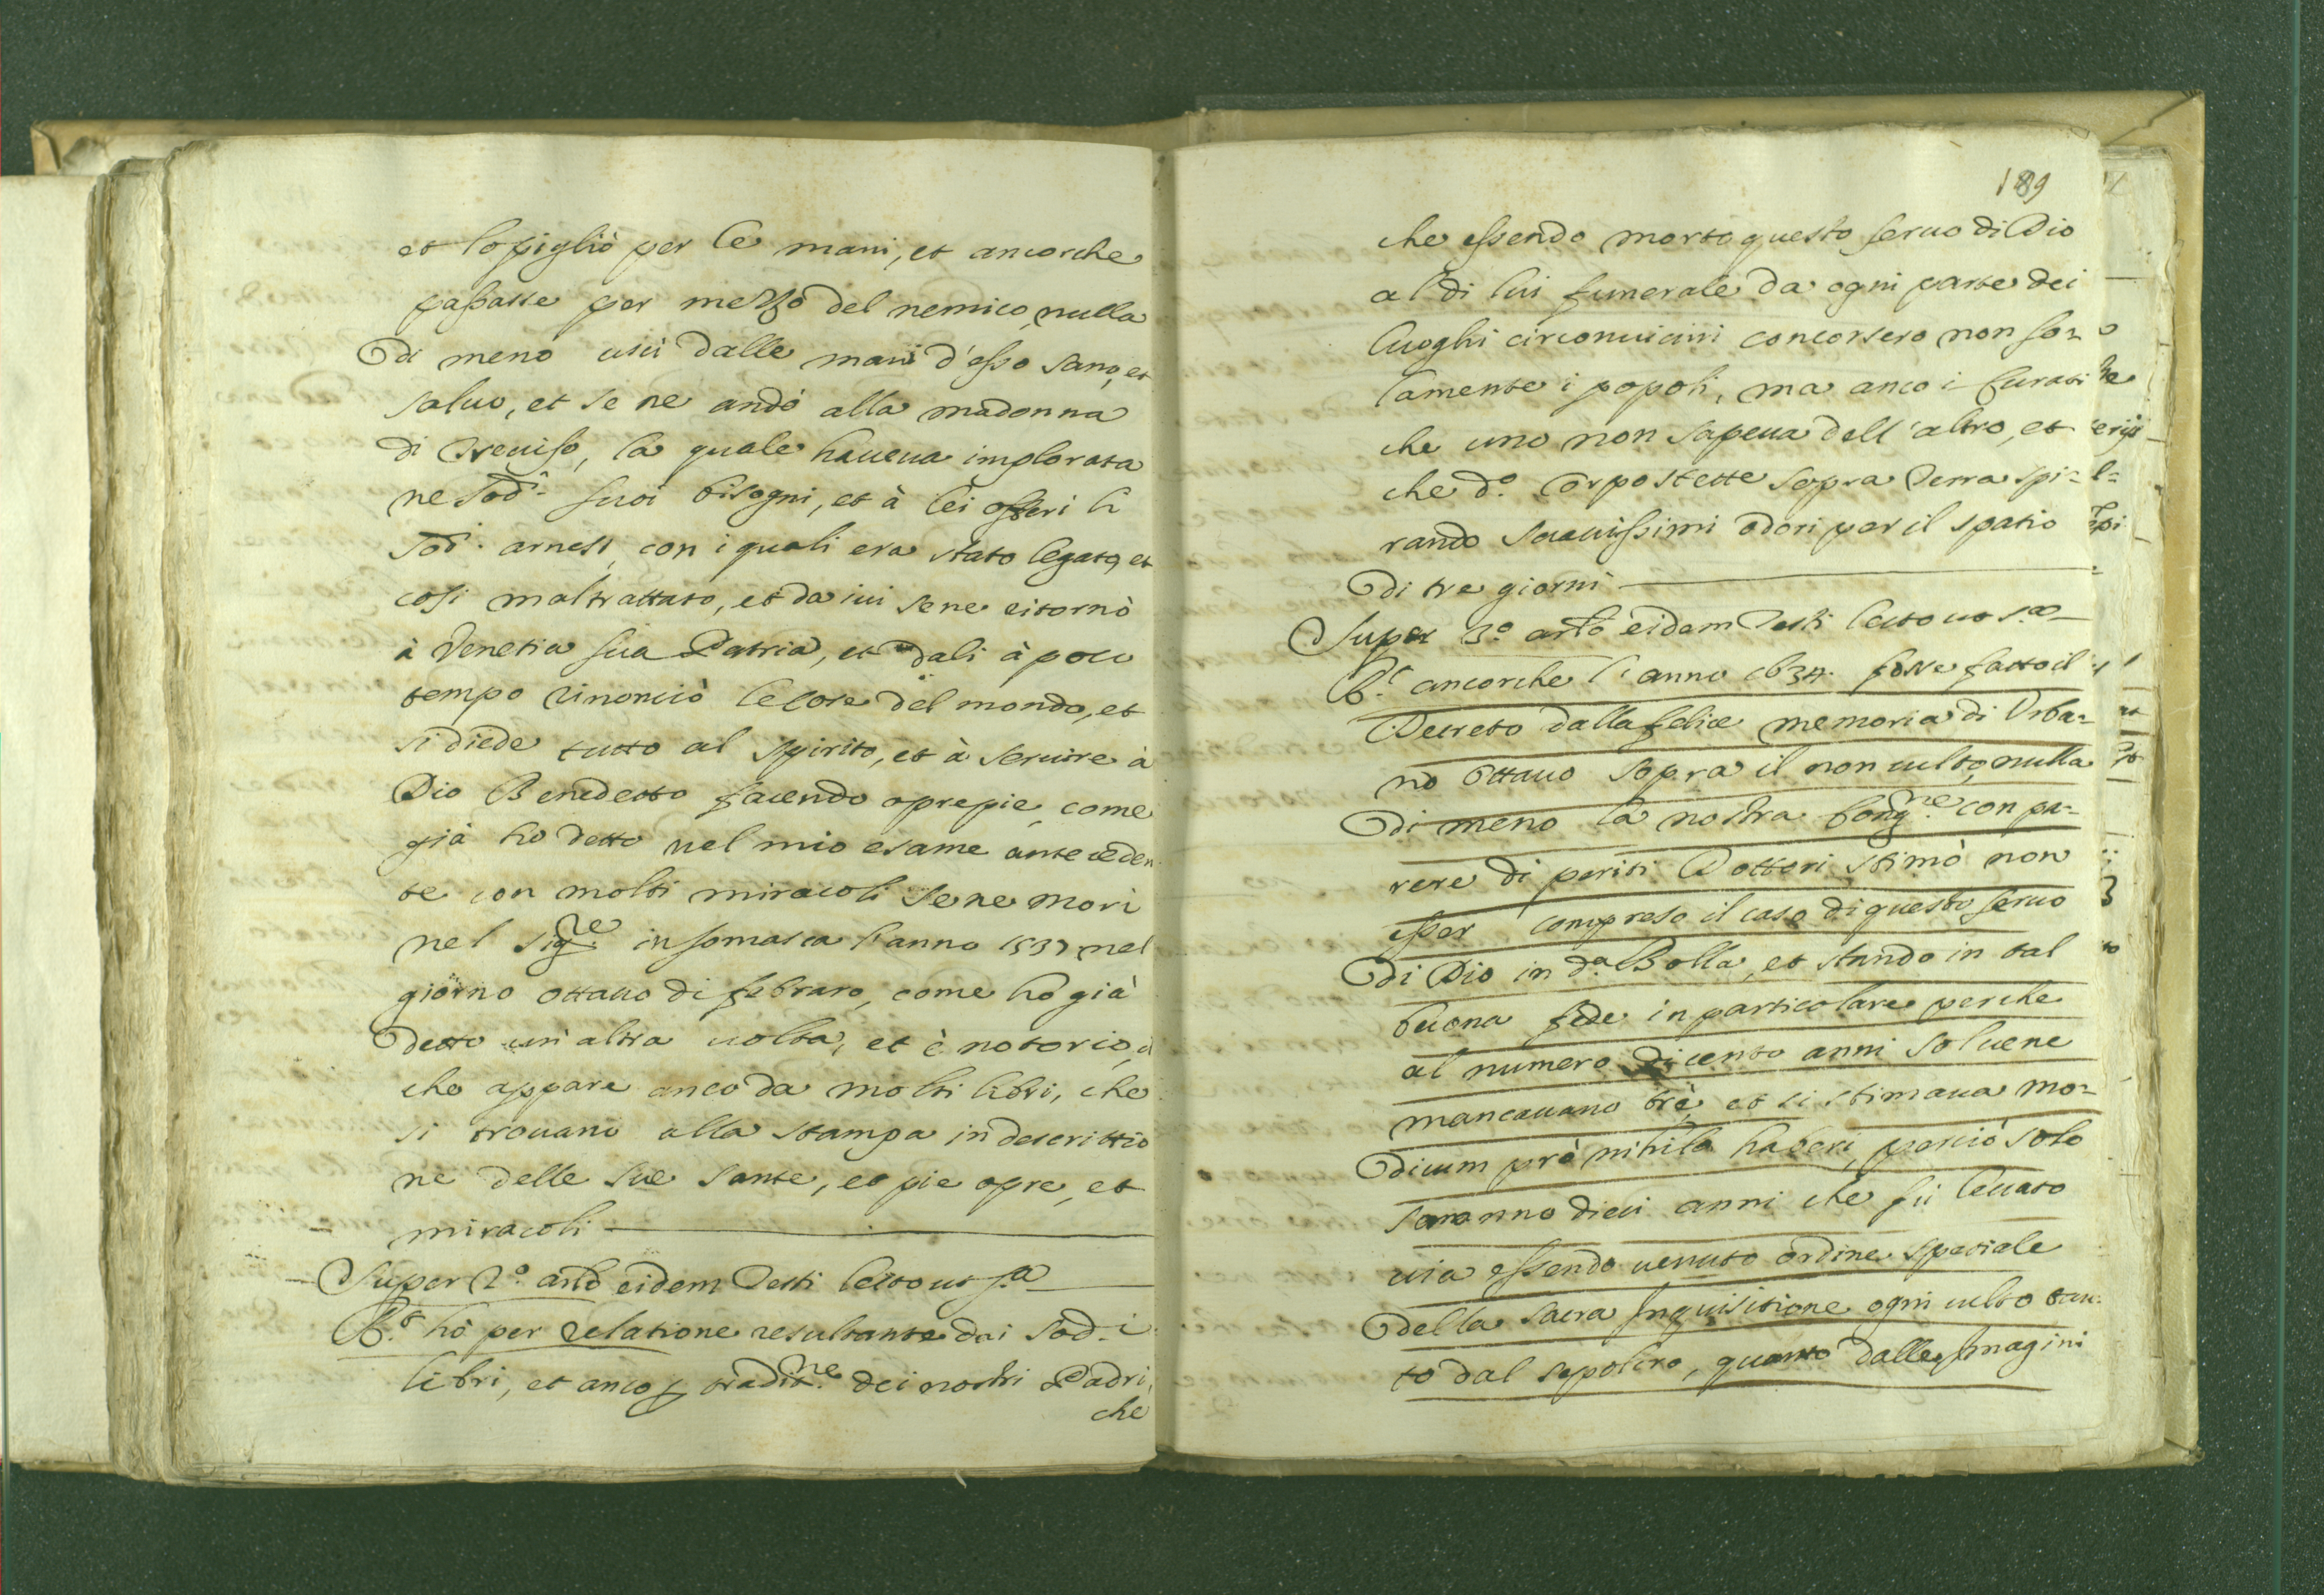 et lo pigliò per le mani, et ancorche
passasse per mezzo del nemico, nulla
di meno uscì dalle mani d'esso sano, et
saluo, et se ne andò alla madonna
di Treuiso, la quale haueua implorata
ne sod.i suoi bisogni, et à lei offerì li
sod.i arnesi, con i quali era stato legato, et
cosi maltrattato, et da iui se ne ritornò
à Venetia sua Patria, et dali à poco
tempo rinonciò le cose del mondo, et
si diede tutto al spirito, et à seruire à
Dio Benedetto facendo opre pie, come
già ho detto nel mio esame anteceden
te con molti miracoli se ne morì
nel Sig.re in somasca l'anno 1537 nel
giorno ottauo di febraro, come ho già
detto un'altra uolta, et è notorio, il
che appare anco da molti libri, che
si trouano alla stampa in descrittio
ne delle sue sante, et pie opre, et
miracoli
Super 2.o arlo eidem Testi lecto ut s.a
R.t hò per relatione resultante dai sod.i
libri, et anco p tradit.ne dei nostri Padri,
che
189
che essendo morto questo seruo di Dio
al di lui funerale da ogni parte dei
luoghi circonuicini concorsero non so=
lamente i popoli, ma anco i Curati
che uno non sapeua dell'altro, et
che d.o corpo stette sopra Terra spi=
rando soauissimi odori per il spatio
di tre giorni
Super 3.o arlo eidem Testi lecto ut s.a
R.t ancorche l'anno 1634. fosse fatto il
Decreto dalla felice memoria di Urba=
no Ottauo sopra il non culto, nulla
di meno la nostra Cong.ne con pa=
rere di periti Dottori stimò non
esser compreso il caso di questo seruo
di Dio in d.a Bolla, et stando in tal
buona fede in particolare perche
al numero di cento anni solo uene
mancauano trè, et si stimaua mo=
dicum prò nihilo haberi, perciò solo
saranno dieci anni che fù leuato
uia essendo uenuto ordine speciale
della sacra Inquisitione ogni culto tan=
to dal sepolcro, quanto dalle Imagini